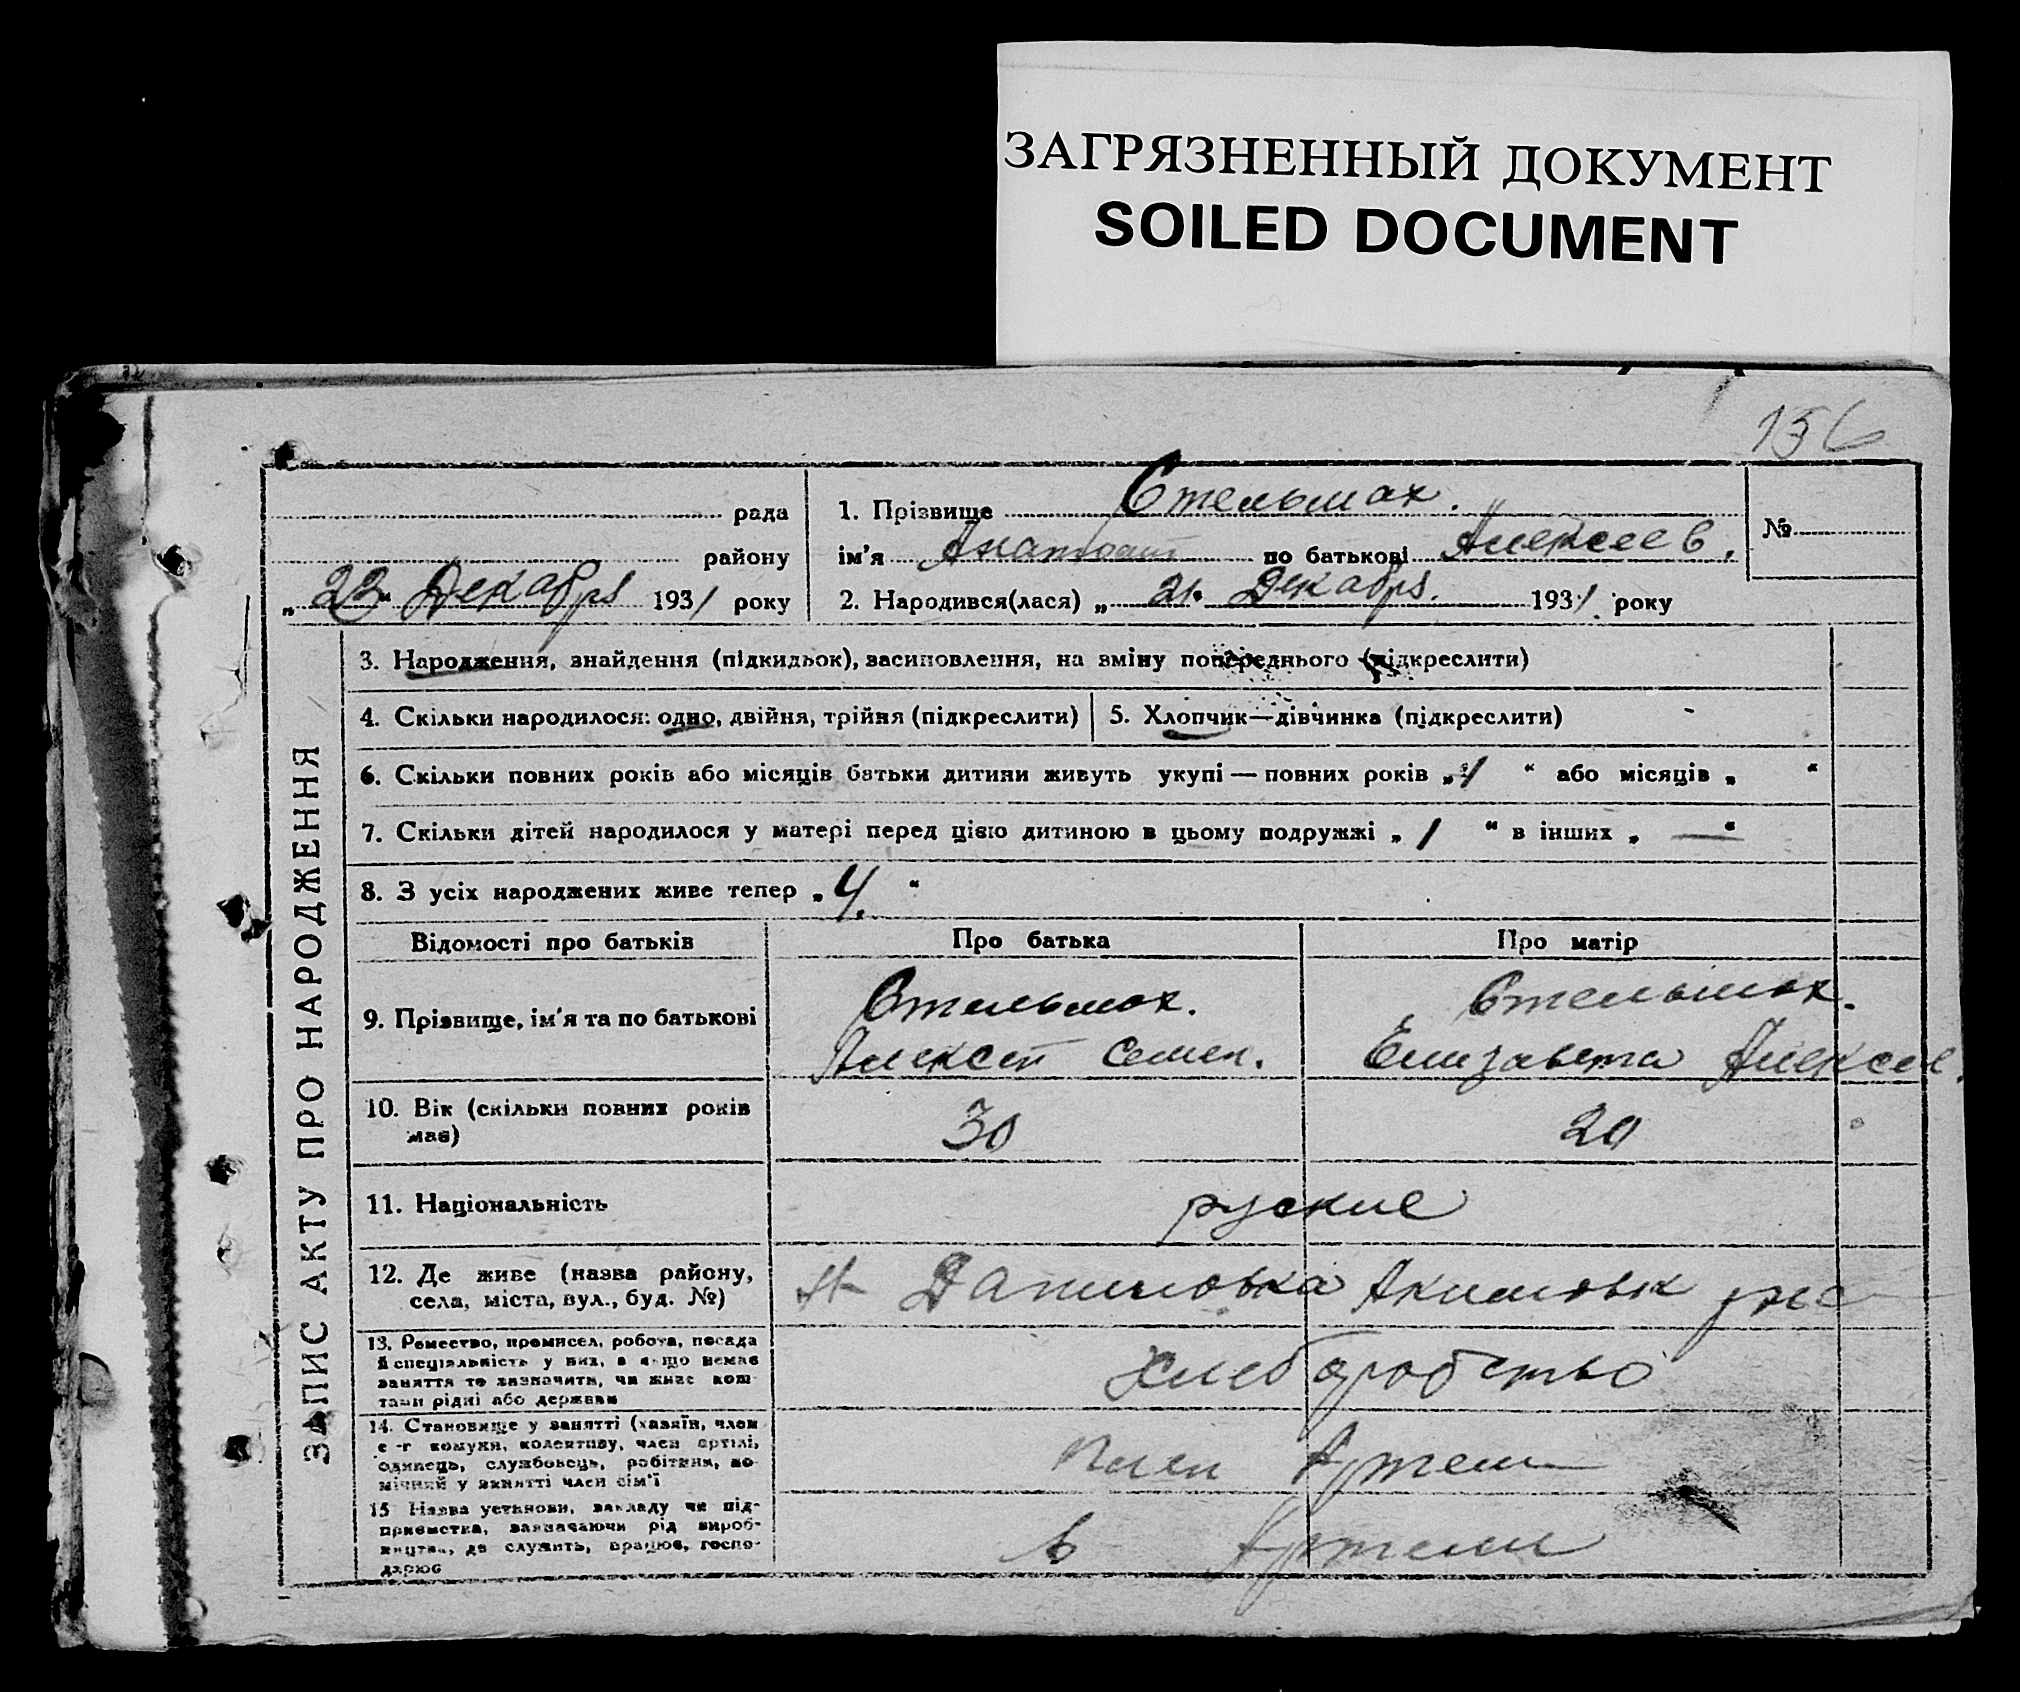 ЗАГРЯЗНЕННЫЙ ДОКУМЕНТ
SOILED DOCUMENT
156
рада
району
„23“ Декабря 1931 року
1. Прізвище Стельмах.
ім'я Анатолий по батькові Алексеев.
2. Народився(лася) „21“ Декабря. 1931. року
№
ЗАПИС АКТУ ПРО НАРОДЖЕННЯ
3. Народження, знайдення (підкидьок), засиновлення, на зміну попереднього (підкреслити)
4. Скільки народилося: одно, двійня, трійня (підкреслити)
5. Хлопчик—дівчинка (підкреслити)
6. Скільки повних років або місяців батьки дитини живуть укупі — повних років „ “ або місяців „ “
7. Скільки дітей народилося у матері перед цією дитиною в цьому подружжі „1“ в інших „—“
8. З усіх народжених живе тепер „ “
Відомості про батьків
Про батька
Про матір
9. Прізвище, ім'я та по батькові
Стельмах.
Алексей Семен.
Стельмах.
Елизавета Алексее.
10. Вік (скільки повних років
має)
30
11. Національність
руские
12. Де живе (назва району,
села, міста, вул., буд. №)
Даниловка Акимовск
13. Ремество, промисел, робота, посада
й спеціяльність у них, а якщо немає
заняття то зазначити, чи живе кош-
тами рідні або держави
Хлеборобство
14. Становище у занятті (хазяїн, член
с-г комуни, колективу, член артілі,
одинець, службовець, робітник, по-
мічний у занятті член сім'ї
Член Артели
15 Назва установи, закладу чи під-
приємства, зазначаючи рід вироб-
ництва, де служить, працює, госпо-
дарює
в Артели